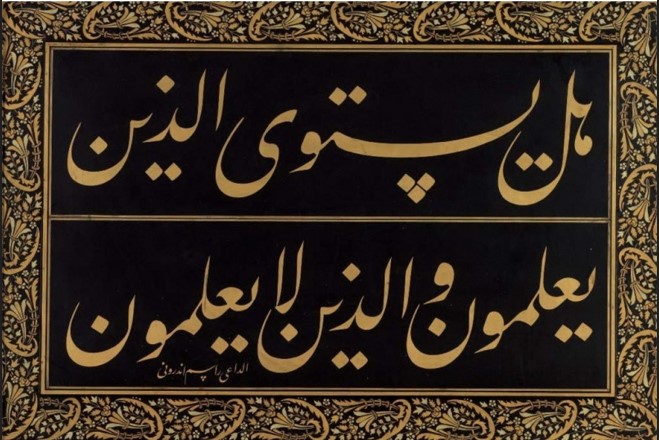 هل يستوى الذين
يعلمون والذين لا يعلمون
الداعى راسم اندرونى